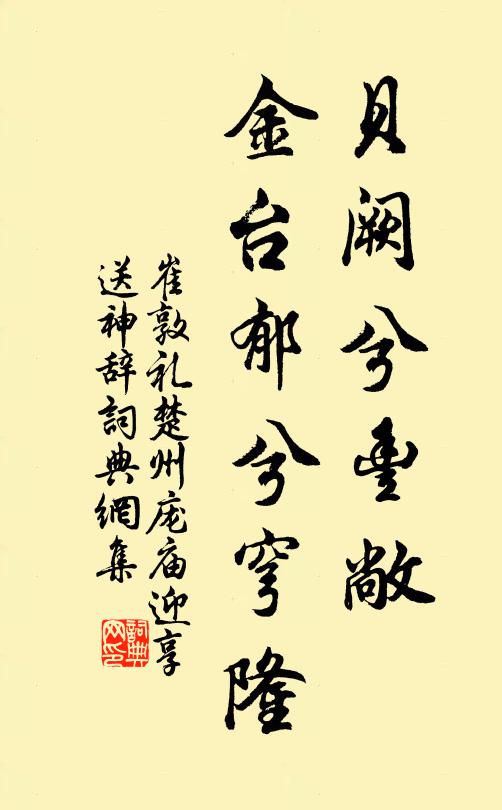 贝阙兮丰敞
金台郁兮穹隆
崔敦礼楚州庞庙迎享
送神辞詞典網集
詞典
网印